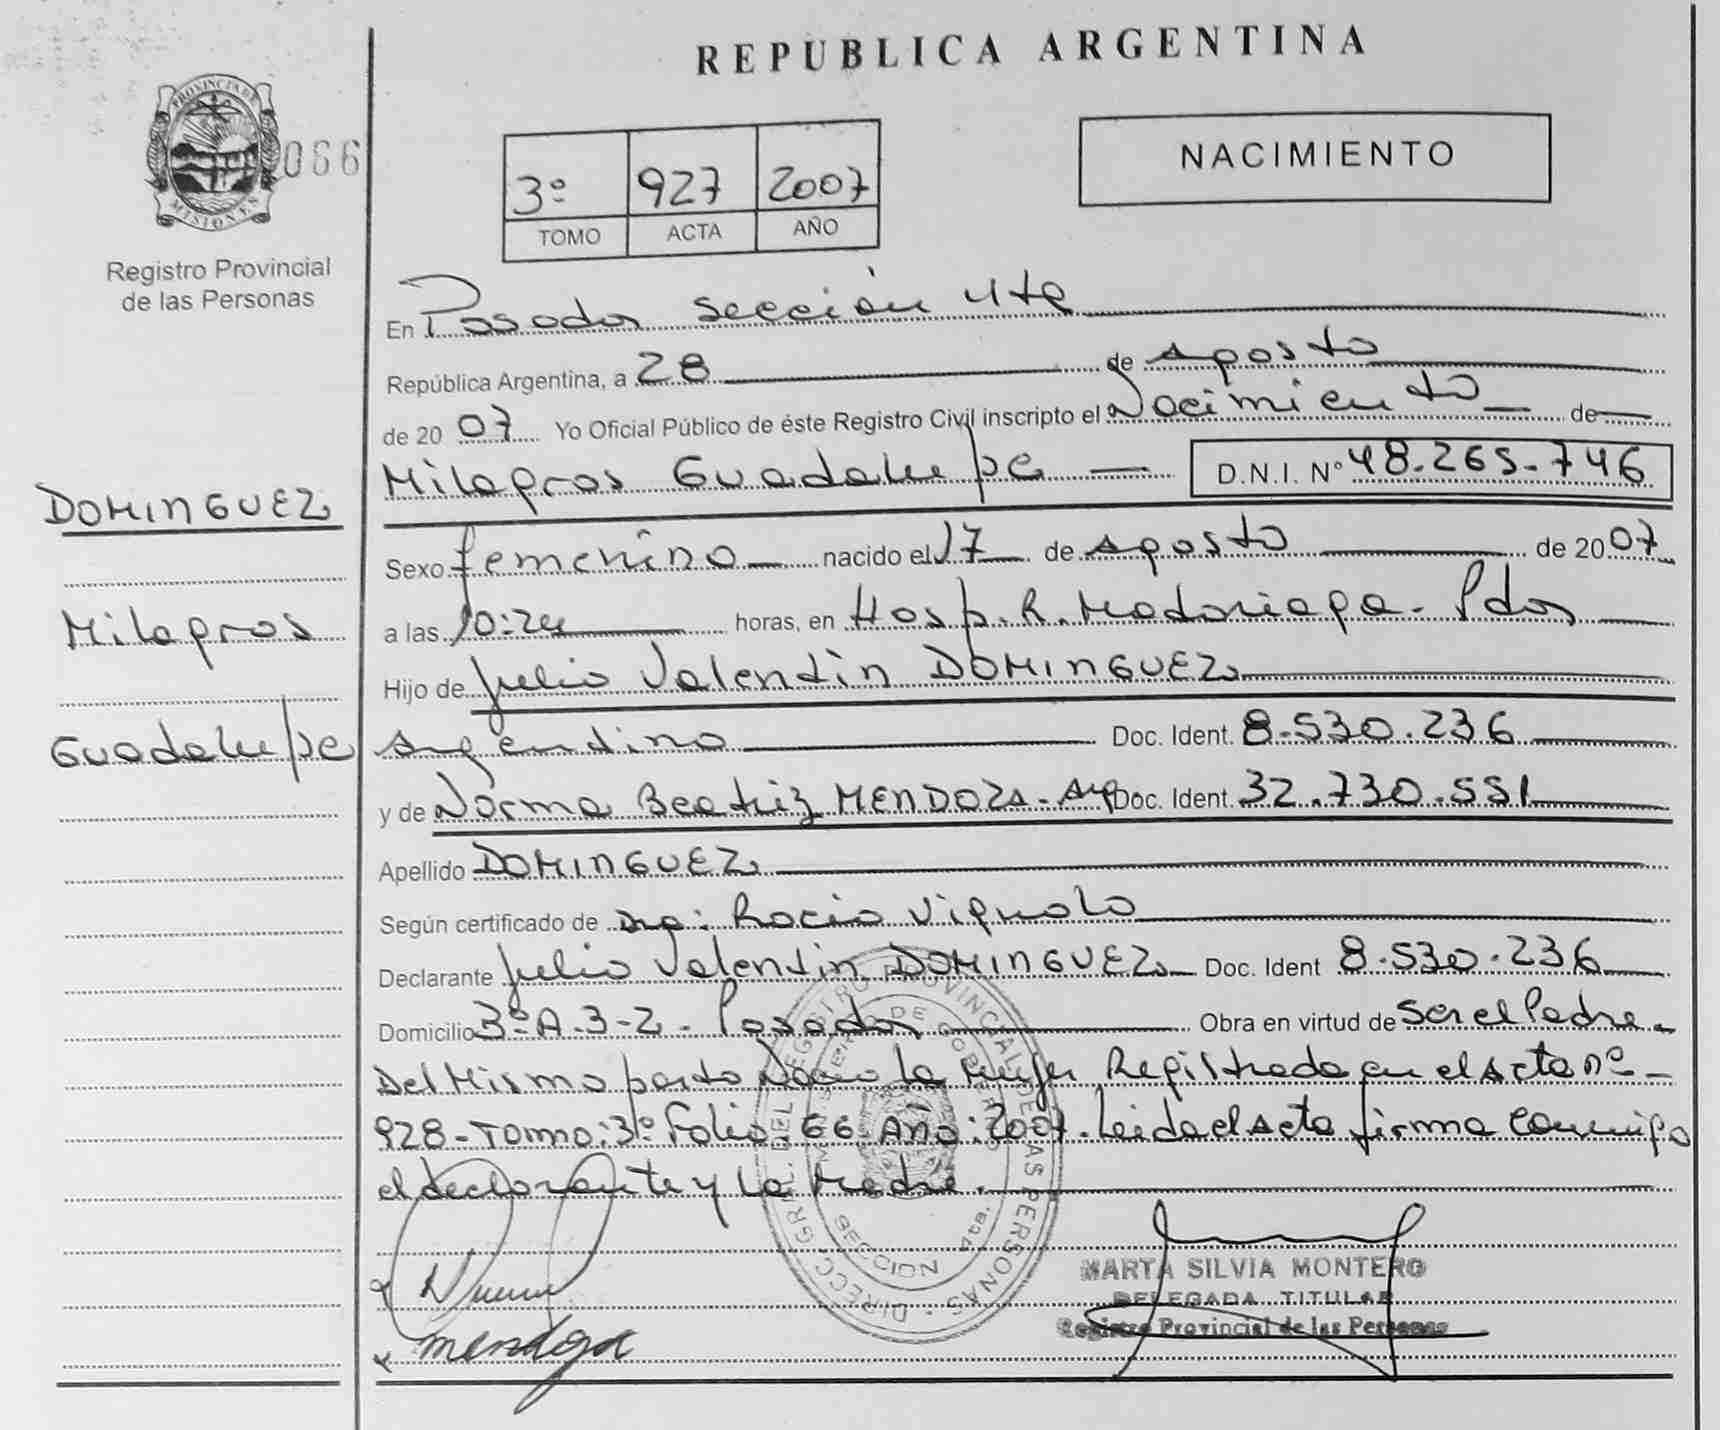 REPUBLICA ARGENTINA
PROVINCIA DE MISIONES
066
Registro Provincial
de las Personas
3º 927 2007
TOMO ACTA AÑO
NACIMIENTO
DOMINGUEZ
Milagros
Guadalupe
En Posadas sección 4ta
República Argentina, a 28 de agosto
de 2007 Yo Oficial Público de éste Registro Civil inscripto el Nacimiento de
Milagros Guadalupe D.N.I. Nº 48.265.746
Sexo femenino nacido el 17 de agosto de 2007
a las 10:24 horas, en Hosp. R. Madariaga - Pdas
Hijo de Julio Valentin DOMINGUEZ
argentino Doc. Ident. 8.530.236
y de Norma Beatriz MENDOZA - Arg Doc. Ident. 32.730.551
Apellido DOMINGUEZ
Según certificado de Dra: Rocio Vignolo
Declarante Julio Valentin DOMINGUEZ Doc. Ident 8.530.236
Domicilio 3º A-3-2 - Posadas Obra en virtud de Ser el Padre -
Del Mismo parto Nacio la mujer Registrada en el Acta nº -
928 - Tomo: 3º Folio: 66 Año: 2007. Leida el Acta firma conmigo
el declarante y la Madre.
DIRECC. GRAL. DEL REGISTRO PROVINCIAL DE LAS PERSONAS
MINISTERIO DE GOBIERNO
SECCION 4ta.
MARTA SILVIA MONTERO
DELEGADA TITULAR
Registro Provincial de las Personas
Mendoza